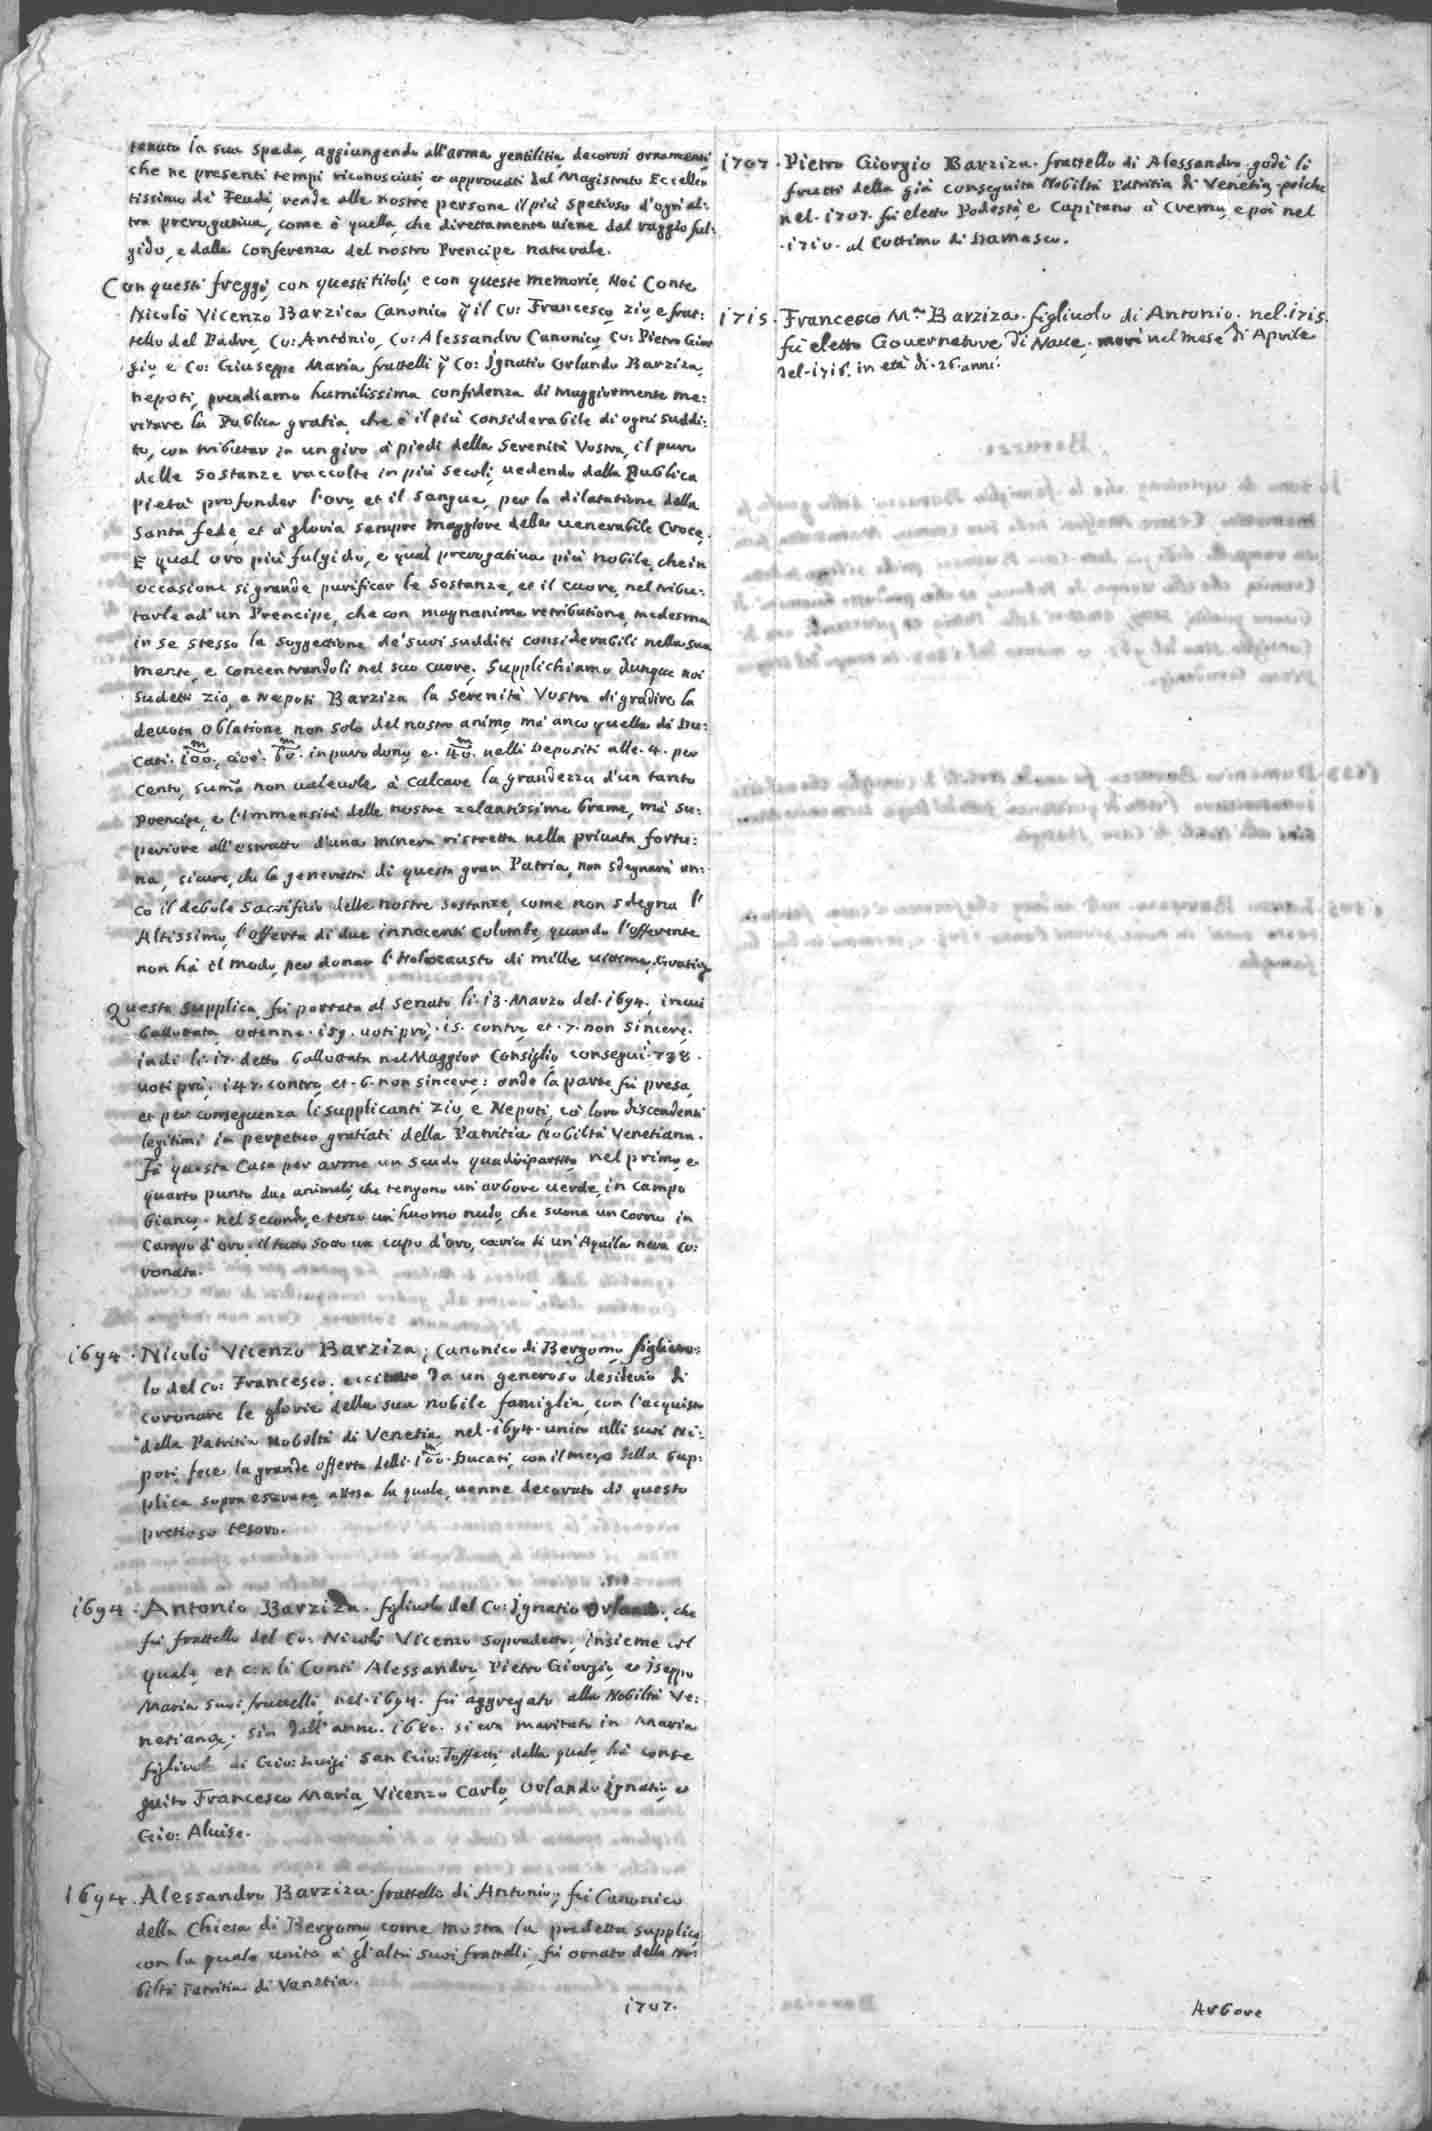 tenuto la sua spada, aggiungendo all'arma gentilitia, decorosi ornamenti,
che ne presenti tempi riconosciuti, et approuati dal Magistrato Eccellen
tissimo de' Feudi, rende alle nostre persone il più spetioso d'ogn'al:
tra prerogatiua, come è quella, che direttamente uiene dal raggio ful:
gido, e dalla Conferenza del nostro Prencipe naturale.
Con questi freggi, con questi titoli, e con queste memorie, Noi Conte
Nicolò Vicenzo Barziza Canonico q il Co: Francesco, zio, e frat:
tello del Padre, Co: Antonio, Co: Alessandro Canonico, Co: Pietro Gior
gio, e Co: Giuseppe Maria fratelli q Co: Ignatio Orlando Barziza,
nepoti, prendiamo humilissima confidenza di maggiormente me:
ritare la Publica gratia, che è il più considerabile di ogni suddi:
to, con tributar in un giro à piedi della Serenità Vostra, il puro
delle sostanze raccolte in più secoli, uedendo dalla Publica
Pietà profonder l'oro, et il sangue, per la dilatatione della
Santa fede, et à gloria sempre maggiore della uenerabile Croce.
E qual oro più fulgido, e qual prerogatiua più nobile, che in
occasione si grande purificar le sostanze, et il cuore, nel tribu:
tarle ad'un Prencipe, che con magnanima retributione, medesma
in se stesso la soggettione de' suoi sudditi considerabili nella sua
mente, e concentrandoli nel suo cuore. Supplichiamo dunque noi
sudetti zio, e Nepoti Barziza la Serenità Vostra di gradire la
deuota oblatione non solo del nostro animo, mà anco quella di Du:
cati. 100m, cioè. 60m. in puro dono, e. 40m. nelli Depositi alle. 4. per
cento, summa non ualeuole, à calcare la grandezza d'un tanto
Prencipe, e l'immensità delle nostre zelantissime brame, mà su:
periore all'estratto d'una minera ristretta nella priuata fortu:
na, sicure, che la generosità di questa gran Patria, non sdegnarà an:
co il debole sacrificio delle nostre sostanze, come non sdegna l'
Altissimo, l'offerta di due innocenti Colombe, quando l'offerente
non hà il modo, per donar l'Holocausto di mille uittime. Gratie
Questa supplica, fù portata al Senato li. 13. Marzo del. 1694., in cui
ballottata, ottenne. 159. uoti prò, 15. contro, et. 7. non sincere,
indi li. 17. detto ballottata nel Maggior Consiglio conseguì. 738.
uoti prò, 147. contro, et. 6. non sincere: onde la parte fù presa,
et per conseguenza li supplicanti Zio, e Nepoti, co' loro discendenti
legitimi in perpetuo gratiati della Patritia Nobiltà Venetiana.
Fà questa Casa per arme un scudo quadripartito, nel primo, e
quarto punto due animali, che tengono un'arbore uerde, in campo
bianco. nel secondo, e terzo un'huomo nudo, che suona un corno in
Campo d'oro. il tutto sotto un capo d'oro, carico di un'Aquila nera co:
ronata.
1694. Nicolò Vicenzo Barziza, Canonico di Bergomo, figliuo:
lo del Co: Francesco, eccitato da un generoso desiderio di
coronare le glorie della sua nobile famiglia, con l'acquisto
della Patritia Nobiltà di Venetia, nel. 1694. unito alli suoi Ni:
poti, fece la grande offerta delli. 100m. Ducati, con il mezo della sup:
plica sopra esarata, attesa la quale, uenne decorato di questo
pretioso tesoro.
1694. Antonio Barziza. figliuolo del Co: Ignatio Orlando, che
fù fratello del Co: Nicolò Vicenzo sopradetto, insieme col
quale, et con li Conti Alessandro, Pietro Giorgio, et Iseppo
Maria suoi fratelli, nel. 1694. fù aggregato alla Nobiltà Ve:
netiana; sin dall'anno. 1680. si era maritato in Maria
figliuola di Gio: Luigi San Gio: Toffetti, dalla quale, hà conse
guito Francesco Maria, Vicenzo Carlo, Orlando Ignatio, et
Gio: Aluise.
1694. Alessandro Barziza. fratello di Antonio, fù Canonico
della Chiesa di Bergomo, come mostra la predetta supplica,
con la quale unito à gl'altri suoi fratelli, fù ornato della No:
biltà Patritia di Venetia.
1707.
1707. Pietro Giorgio Barziza. fratello di Alessandro. godè li
frutti della già conseguita Nobiltà Patritia di Venetia, poiche
nel. 1707. fù eletto Podestà, e Capitano à Crema, e poi nel
.1710. al Cottimo di Damasco.
1715. Francesco Ma. Barziza. figliuolo di Antonio. nel. 1715.
fù eletto Gouernatore di Naue. morì nel mese di Aprile
del. 1716. in età di. 26. anni.
Arbore